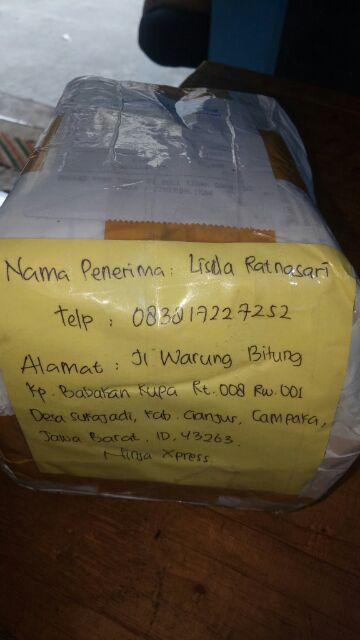 Nama Penerima: Lisda Ratnasari
Telp : 083817227252
Alamat : Jl Warung Bitung
Kp. Babakan Kupa Rt. 008 Rw. 001
Desa Sukajadi, Kab. Cianjur, Campaka,
Jawa Barat, ID, 43263.
Ninja Xpress